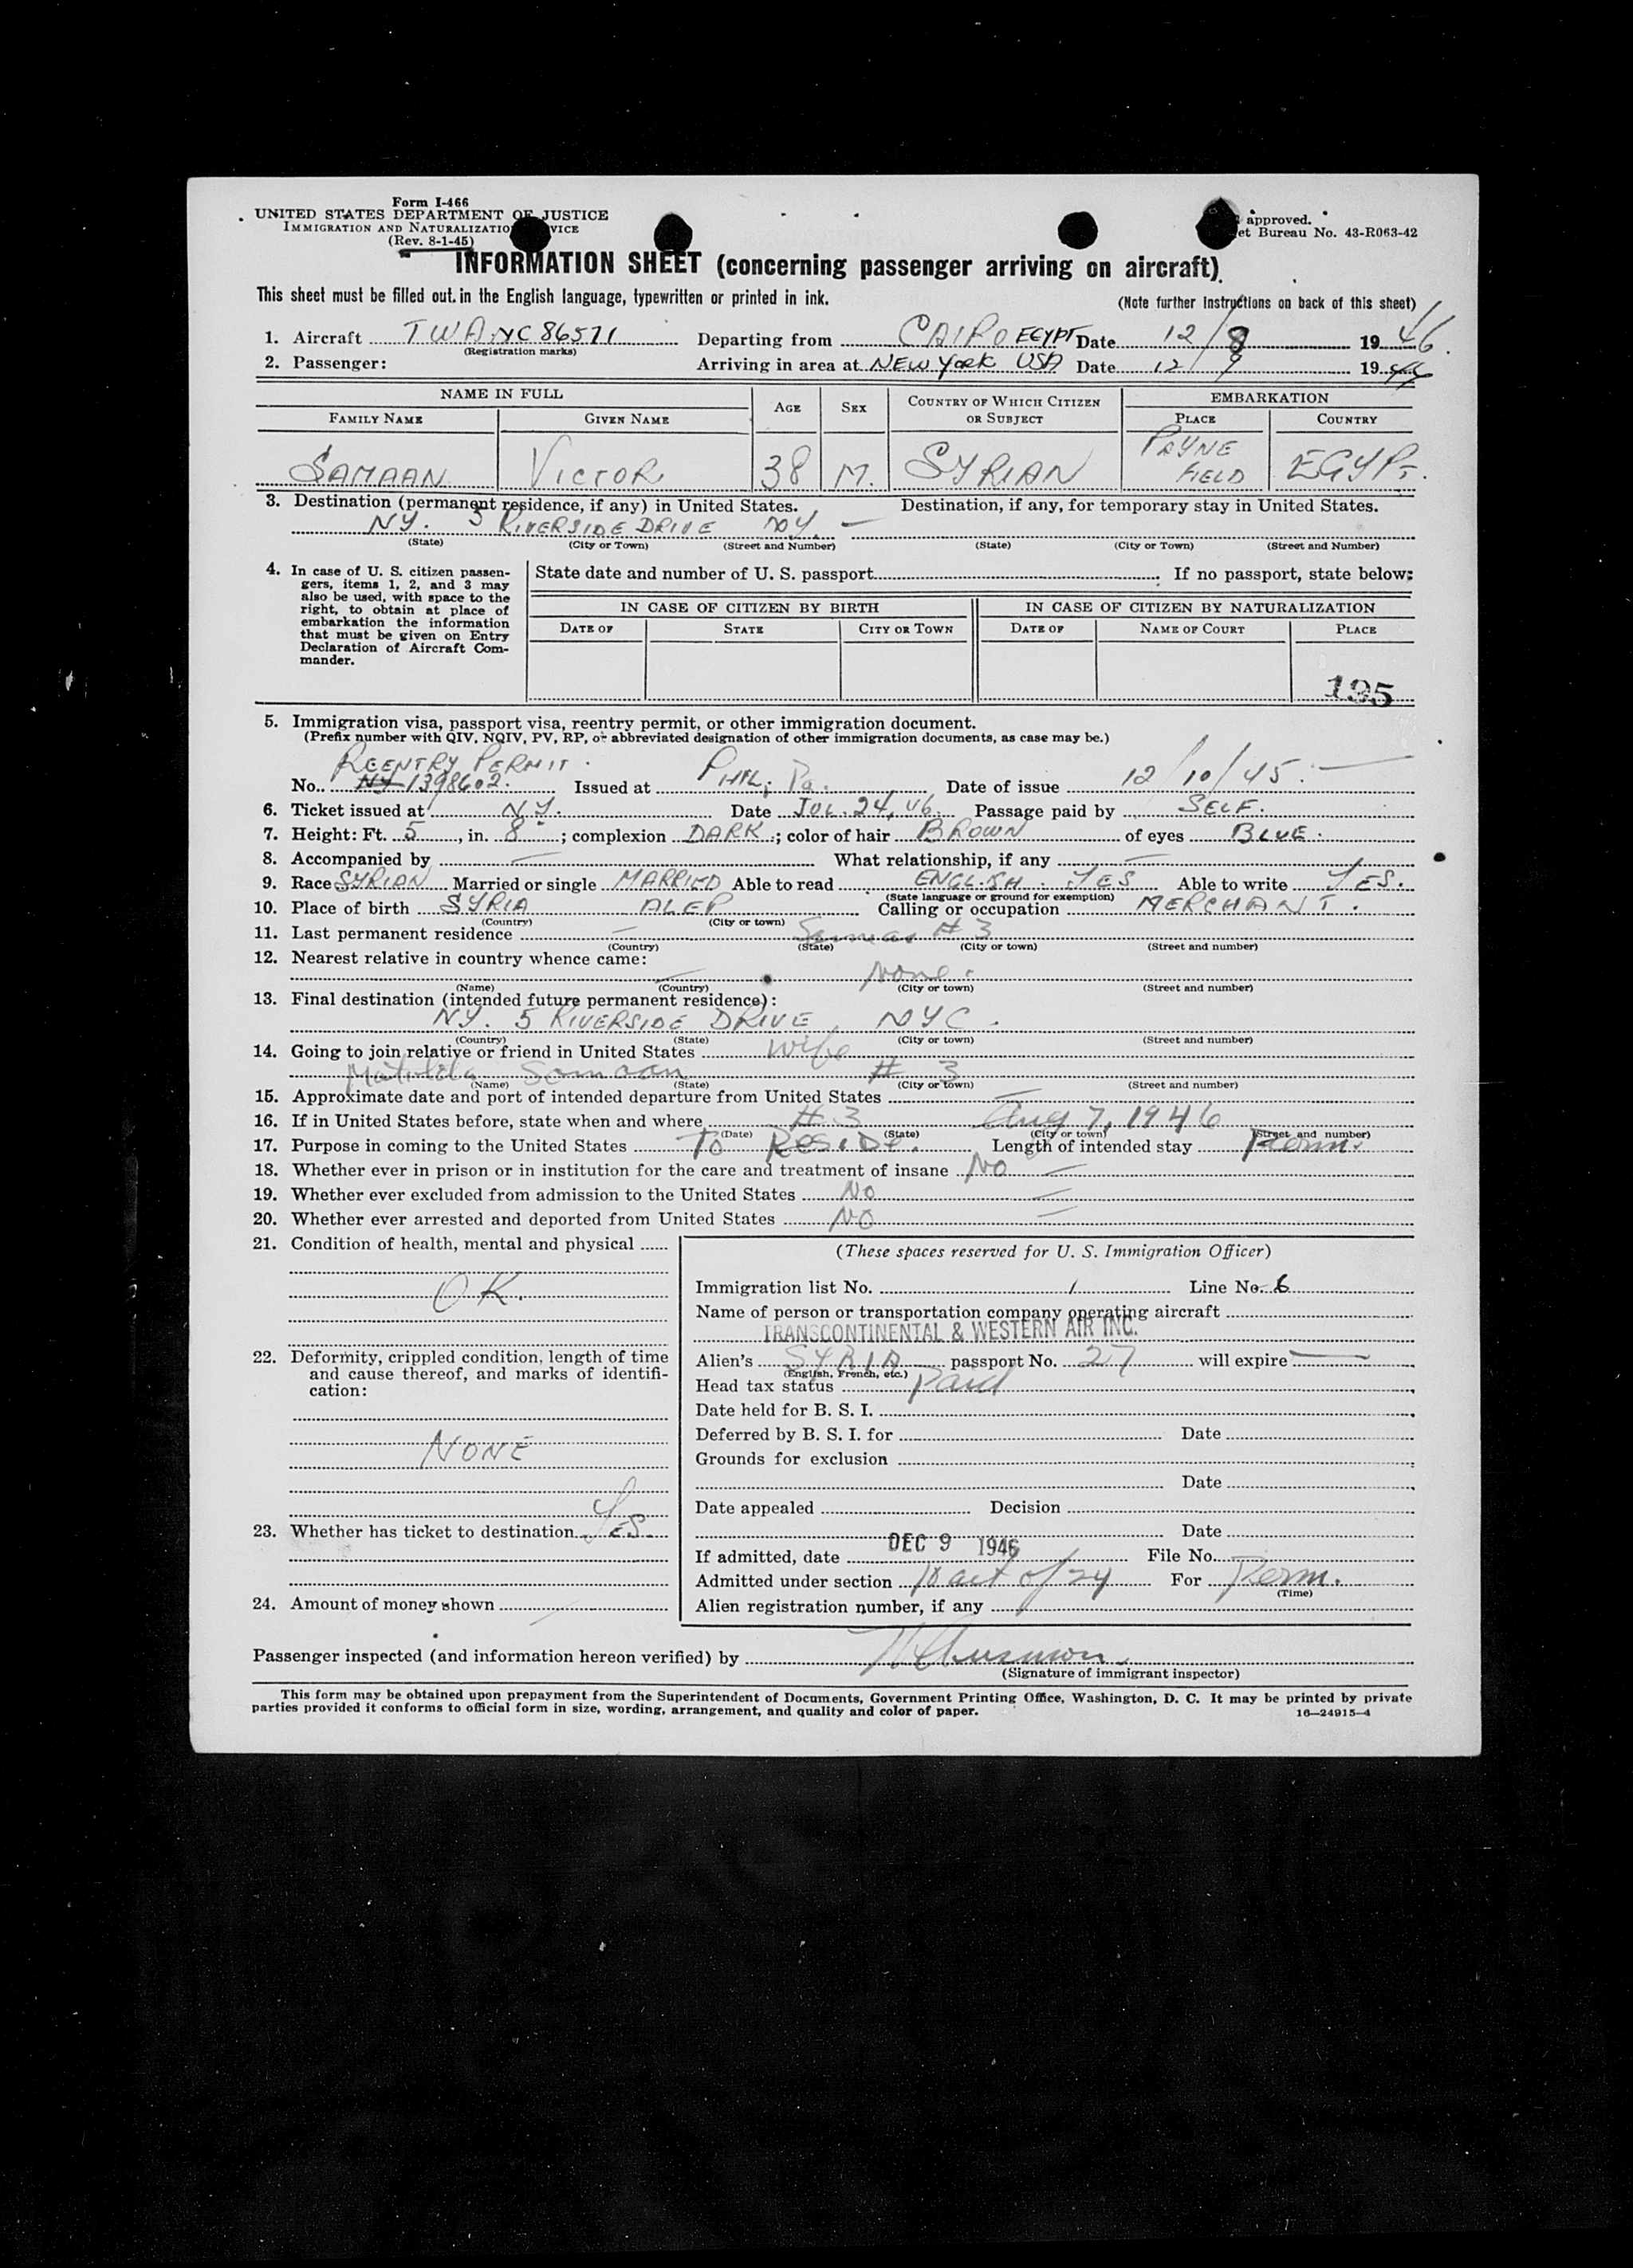 Form I-466
UNITED STATES DEPARTMENT OF JUSTICE
IMMIGRATION AND NATURALIZATIO VICE
(Rev. 8-1-45)
approved.
et Bureau No. 43-R063-42
INFORMATION SHEET (concerning passenger arriving on aircraft)
This sheet must be filled out in the English language, typewritten or printed in ink.
(Note further instructions on back of this sheet)
1. Aircraft TWA NC 86511 Departing from CAIRO EGYPT Date 12/8 1946.
(Registration marks)
2. Passenger: Arriving in area at NEW YORK USA Date 12/9 19
NAME IN FULL AGE SEX COUNTRY OF WHICH CITIZEN OR SUBJECT EMBARKATION
FAMILY NAME GIVEN NAME PLACE COUNTRY
SAMAAN VICTOR 38 M. SYRIAN PAYNE FIELD EGYPT.
3. Destination (permanent residence, if any) in United States. Destination, if any, for temporary stay in United States.
NY. 5 RIVERSIDE DRIVE NY. —
(State) (City or Town) (Street and Number) (State) (City or Town) (Street and Number)
4. In case of U. S. citizen passen-
gers, items 1, 2, and 3 may
also be used, with space to the
right, to obtain at place of
embarkation the information
that must be given on Entry
Declaration of Aircraft Com-
mander.
State date and number of U. S. passport If no passport, state below:
IN CASE OF CITIZEN BY BIRTH IN CASE OF CITIZEN BY NATURALIZATION
DATE OF STATE CITY OR TOWN DATE OF NAME OF COURT PLACE
195
5. Immigration visa, passport visa, reentry permit, or other immigration document.
(Prefix number with QIV, NQIV, PV, RP, or abbreviated designation of other immigration documents, as case may be.)
REENTRY PERMIT.
No. NY 1398602. Issued at PHIL; Pa. Date of issue 12/10/45. —
6. Ticket issued at N.Y. Date JUL. 24, 46. Passage paid by SELF.
7. Height: Ft. 5, in. 8; complexion DARK; color of hair BROWN of eyes BLUE.
8. Accompanied by — What relationship, if any —
9. Race SYRIAN Married or single MARRIED Able to read ENGLISH. YES Able to write YES.
(State language or ground for exemption)
10. Place of birth SYRIA ALEP Calling or occupation MERCHANT.
(Country) (City or town)
11. Last permanent residence — Same as # 3
(Country) (State) (City or town) (Street and number)
12. Nearest relative in country whence came:
— None.
(Name) (Country) (City or town) (Street and number)
13. Final destination (intended future permanent residence):
NY. 5 RIVERSIDE DRIVE, NYC.
(Country) (State) (City or town) (Street and number)
14. Going to join relative or friend in United States wife
Matilda Samaan # 3
(Name) (State) (City or town) (Street and number)
15. Approximate date and port of intended departure from United States —
16. If in United States before, state when and where # 3 Aug 7, 1946
(Date) (State) (City or town) (Street and number)
17. Purpose in coming to the United States To RESIDE. Length of intended stay Perm.
18. Whether ever in prison or in institution for the care and treatment of insane NO —
19. Whether ever excluded from admission to the United States NO —
20. Whether ever arrested and deported from United States NO —
21. Condition of health, mental and physical
OK.
22. Deformity, crippled condition, length of time
and cause thereof, and marks of identifi-
cation:
NONE
23. Whether has ticket to destination YES
24. Amount of money shown
(These spaces reserved for U. S. Immigration Officer)
Immigration list No. 1 Line No. 6
Name of person or transportation company operating aircraft
TRANSCONTINENTAL & WESTERN AIR INC.
Alien's SYRIA passport No. 27 will expire —
(English, French, etc.)
Head tax status Paid
Date held for B. S. I.
Deferred by B. S. I. for Date
Grounds for exclusion
Date
Date appealed Decision
Date
If admitted, date DEC 9 1946 File No.
Admitted under section act of 24 For Perm.
(Time)
Alien registration number, if any
Passenger inspected (and information hereon verified) by
(Signature of immigrant inspector)
This form may be obtained upon prepayment from the Superintendent of Documents, Government Printing Office, Washington, D. C. It may be printed by private
parties provided it conforms to official form in size, wording, arrangement, and quality and color of paper. 16—24915-4